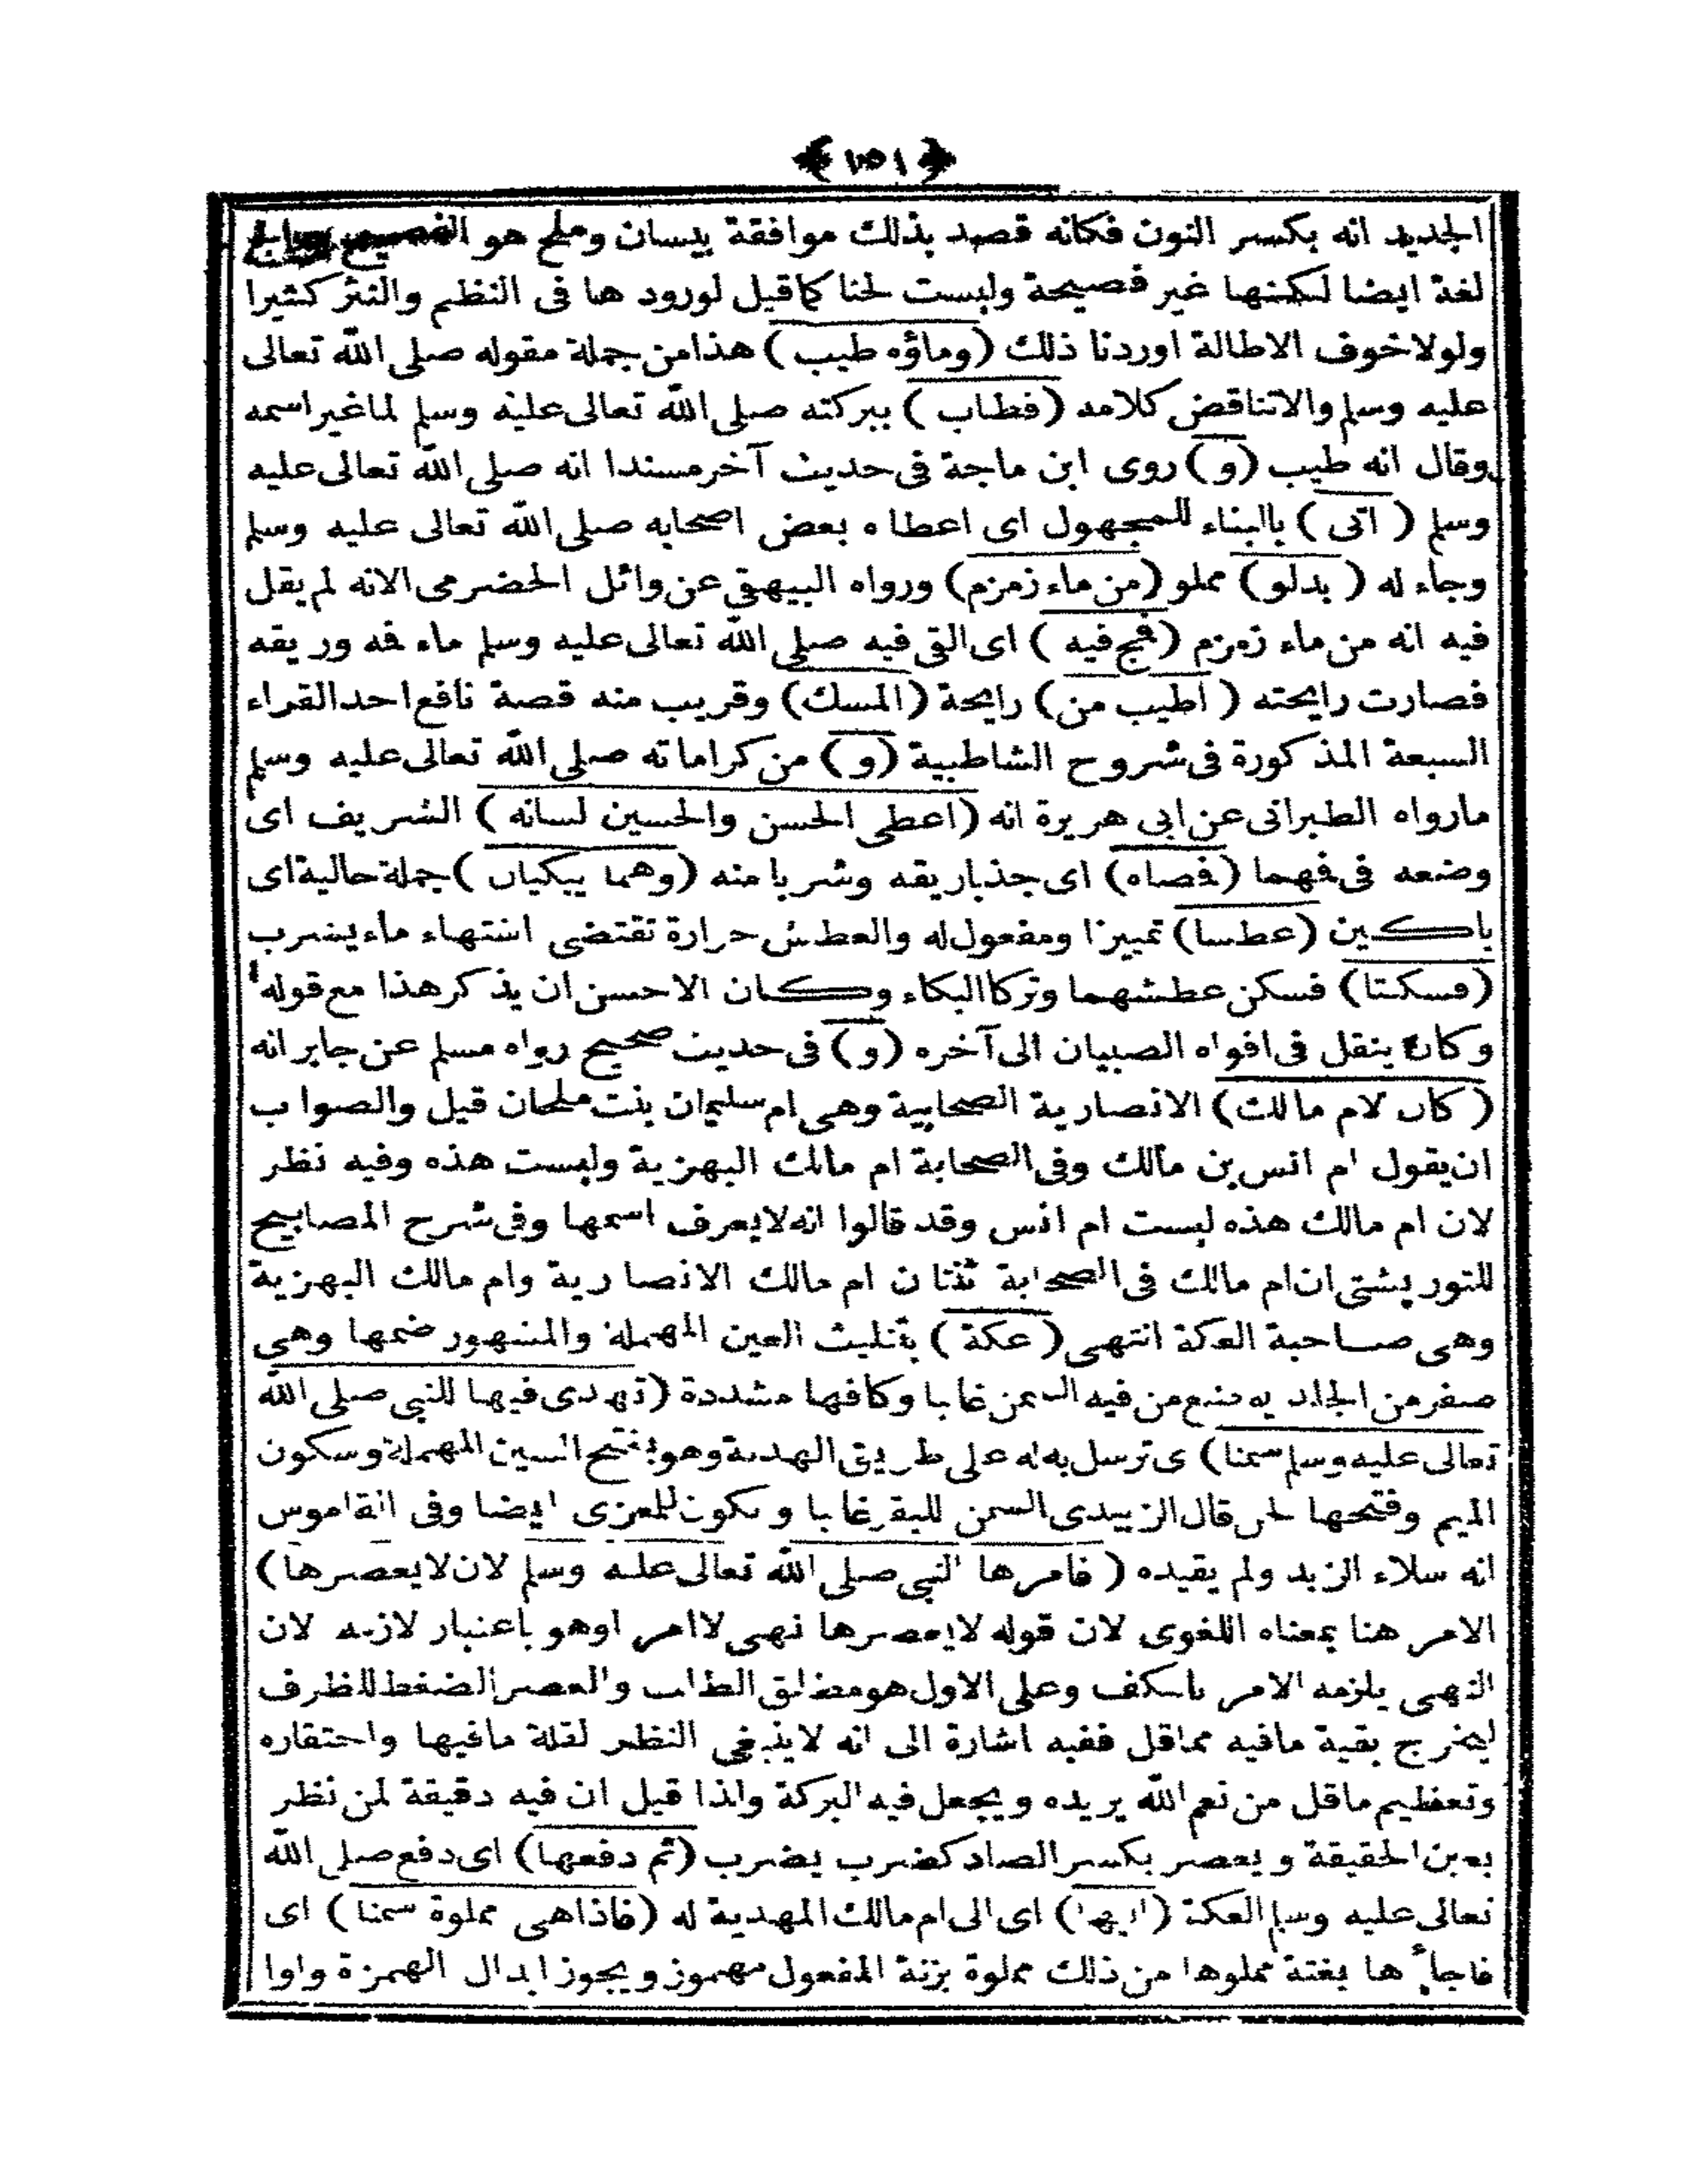 ﴿ ١٥١ ﴾
الجديد انه بكسر النون فكانه قصد بذلك موافقة بيسان وملح هو الفصيح
لغة ايضا لكنها غير فصيحة وليست لحنا كماقيل لورود ها فى النظم والنثر كثيرا
ولولاخوف الاطالة اوردنا ذلك (وماؤه طيب) هذامن جملة مقوله صلى الله تعالى
عليه وسلم والاتناقض كلامه (فطاب) ببركته صلى الله تعالى عليه وسلم لماغير اسمه
وقال انه طيب (و) روى ابن ماجة فى حديث آخر مسندا انه صلى الله تعالى عليه
وسلم (اتى) بالبناء للمجهول اى اعطا ه بعض اصحابه صلى الله تعالى عليه وسلم
وجاء له (بدلو) مملو (من ماء زمزم) ورواه البيهقى عن وائل الحضرمى الانه لم يقل
فيه انه من ماء زمزم (فمج فيه) اى القى فيه صلى الله تعالى عليه وسلم ماء فه وريقه
فصارت رايحته (اطيب من) رايحة (المسك) وقريب منه قصة نافع احد القراء
السبعة المذكورة فى شروح الشاطبية (و) من كراماته صلى الله تعالى عليه وسلم
مارواه الطبرانى عن ابى هريرة انه (اعطى الحسن والحسين لسانه) الشريف اى
وضعه فى فهما (فصاه) اى جذباريقه وشربا منه (وهما يبكيان) جملة حالية اى
باكين (عطسا) تمييزا ومفعول له والعطش حرارة تقتضى اشتهاء ماء يشرب
(فسكتا) فسكن عطشهما وتركا البكاء وكان الاحسن ان يذكر هذا مع قوله
وكان يتفل فى افواه الصبيان الى آخره (و) فى حديث صحيح رواه مسلم عن جابر انه
(كان لام مالك) الانصارية الصحابية وهى ام سليم ان بنت ملحان قيل والصواب
ان يقول ام انس بن مالك وفى الصحابة ام مالك البهزية وليست هذه وفيه نظر
لان ام مالك هذه ليست ام انس وقد قالوا انه لايعرف اسمها وفى شرح المصابيح
للتوربشتى ان ام مالك فى الصحابة ثنتان ام مالك الانصارية وام مالك البهزية
وهى صاحبة العكة انتهى (عكة) بتثليث العين المهملة والمشهور ضمها وهى
صغر من الجلد يوضع من فيه السمن غالبا وكافها مشددة (تهدى فيها للنبى صلى الله
تعالى عليه وسلم سمنا) ى ترسل به له على طريق الهدية وهو بفتح السين المهملة وسكون
الميم وفتحها لحن قال الزبيدى السمن للبقر غالبا ويكون للمعزى ايضا وفى القاموس
انه سلاء الزبد ولم يقيده (فامرها النبى صلى الله تعالى عليه وسلم لان لايعصرها)
الامر هنا بمعناه اللغوى لان قوله لايعصرها نهى لاامر اوهو باعتبار لازمه لان
النهى يلزمه الامر بالكف وعلى الاول هو مطلق الطلب والعصر الضغط للظرف
ليخرج بقية مافيه مماقل ففيه اشارة الى انه لاينبغى النظر لقلة مافيها واحتقاره
وتعظيم ماقل من نعم الله يريده ويجعل فيه البركة ولذا قيل ان فيه دقيقة لمن نظر
بعين الحقيقة ويعصر بكسر الصاد كضرب يضرب (ثم دفعها) اى دفع صلى الله
تعالى عليه وسلم العكة (اليها) اى الى ام مالك المهدية له (فاذاهى مملوة سمنا) اى
فاجاءها بغتة مملوها من ذلك مملوة بزنة المفعول مهموز ويجوز ابدال الهمزة واوا